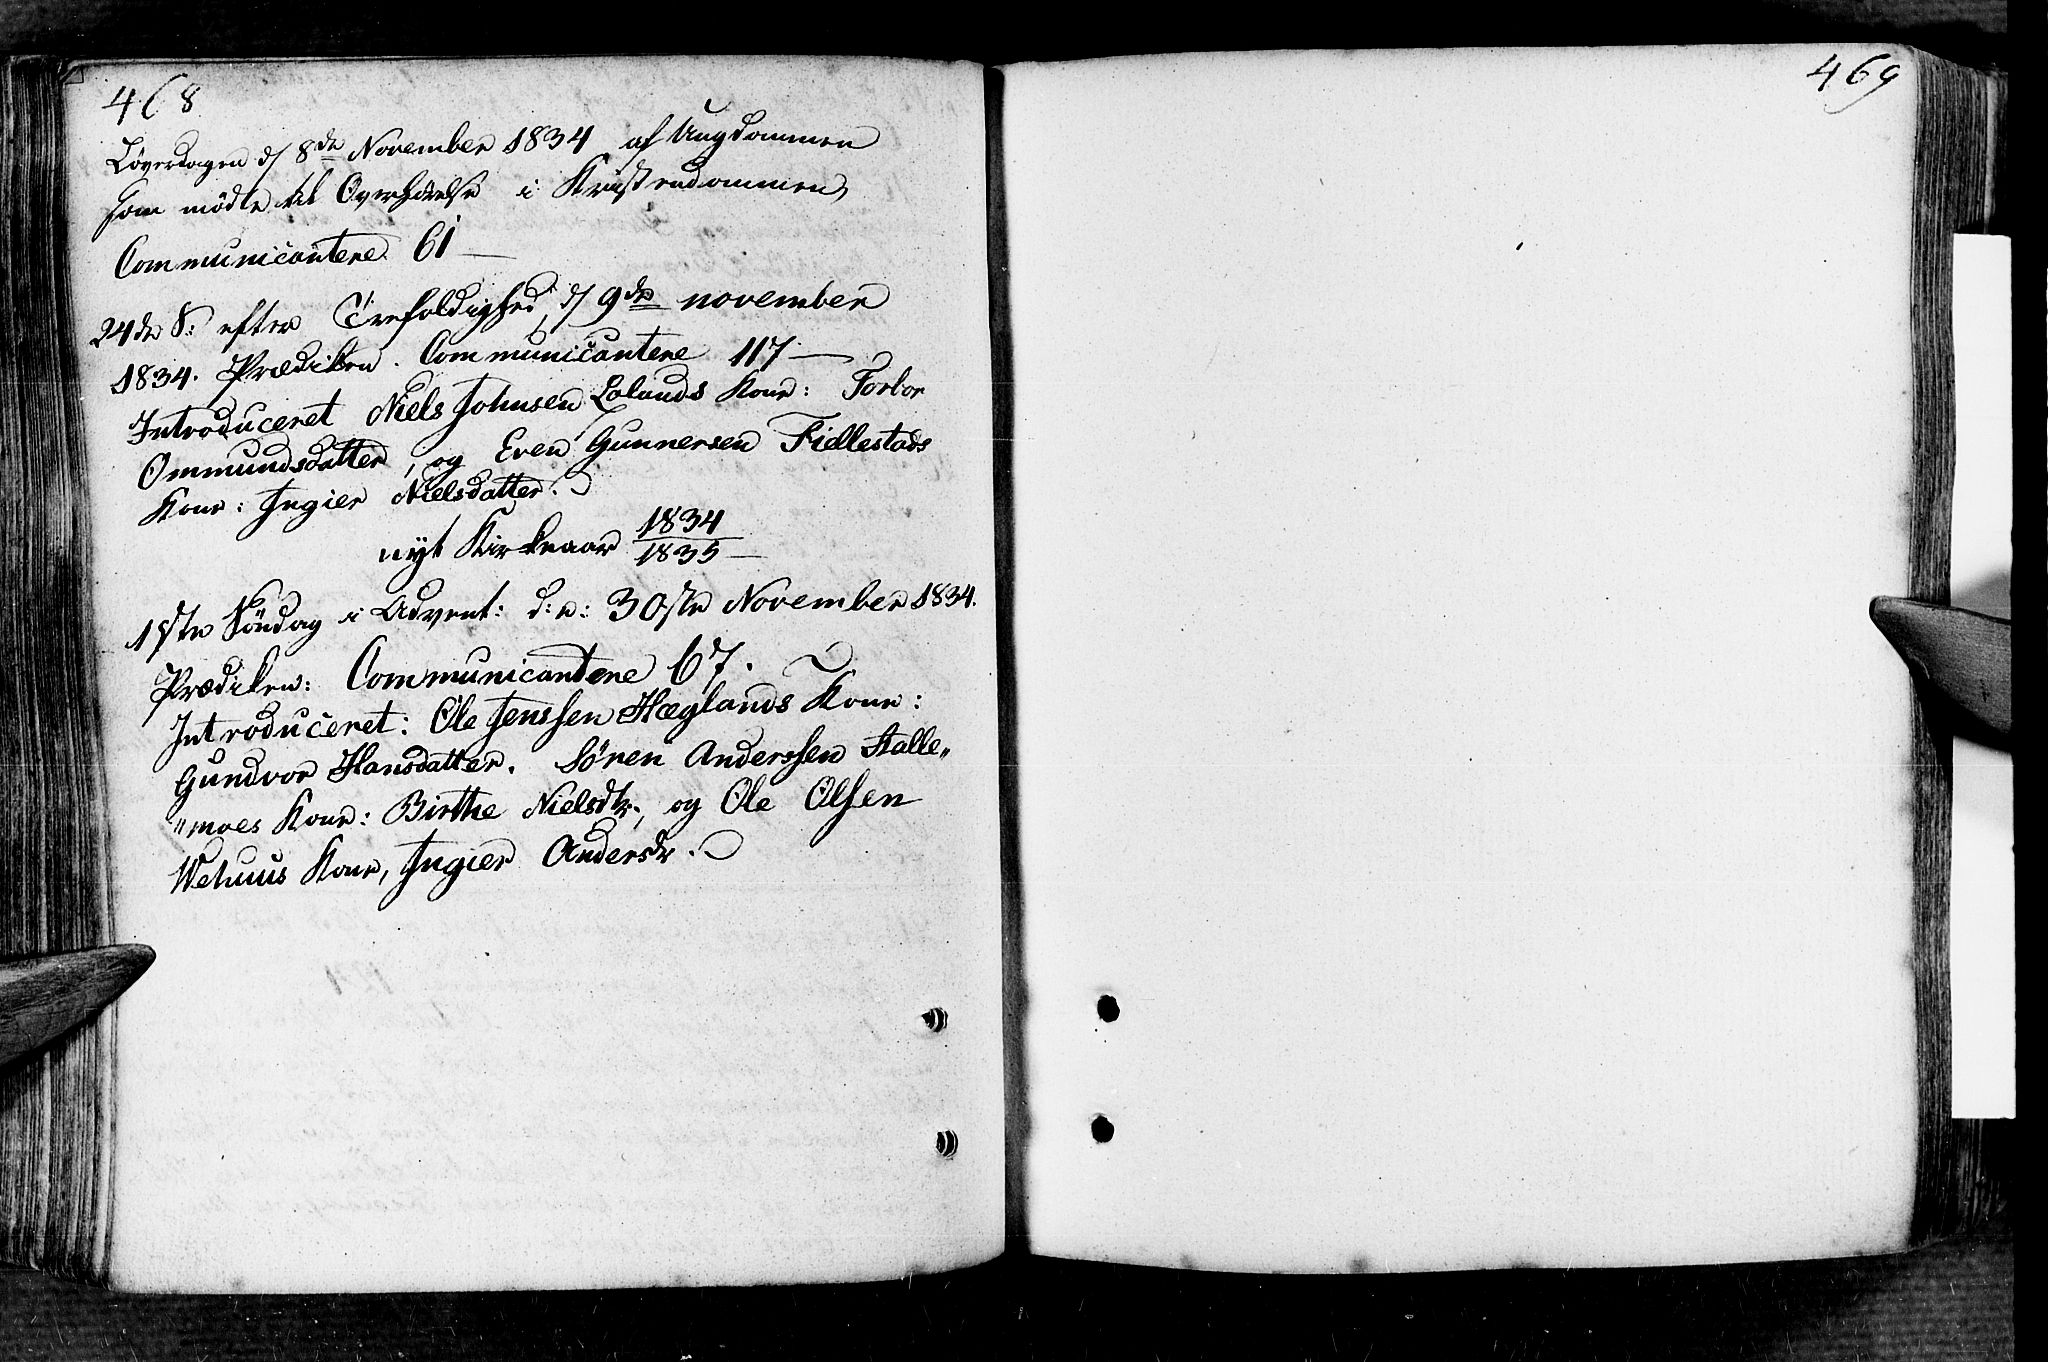 468
Löverdagen d/ 8de November 1834 af Ungdommen
som mödte til Overhörelse i Kristendommen,
Communicantere 61 —
24de S: efter Trefoldighed, d/ 9de november
1834. Prædiken. Communicantere 117 —
Introduceret Niels Johnsen Lolands Kone: Torbor
Ommundsdatter, og Even Gunnersen Fiellestads
Kone: Ingier Nielsdatter.
nyt Kirkeaar 1834/1835 —
1ste Söndag i Advent: d: e: 30ste November 1834.
Prædiken: Communicantere 67.
Introduceret: Ole Jenssen Høeglands Kone:
Gundvor Hansdatter. Sören Anderssen Stalle„
„moes Kone: Birthe Nielsdtr., og Ole Olsen
Kone, Ingier Andersdr.
469